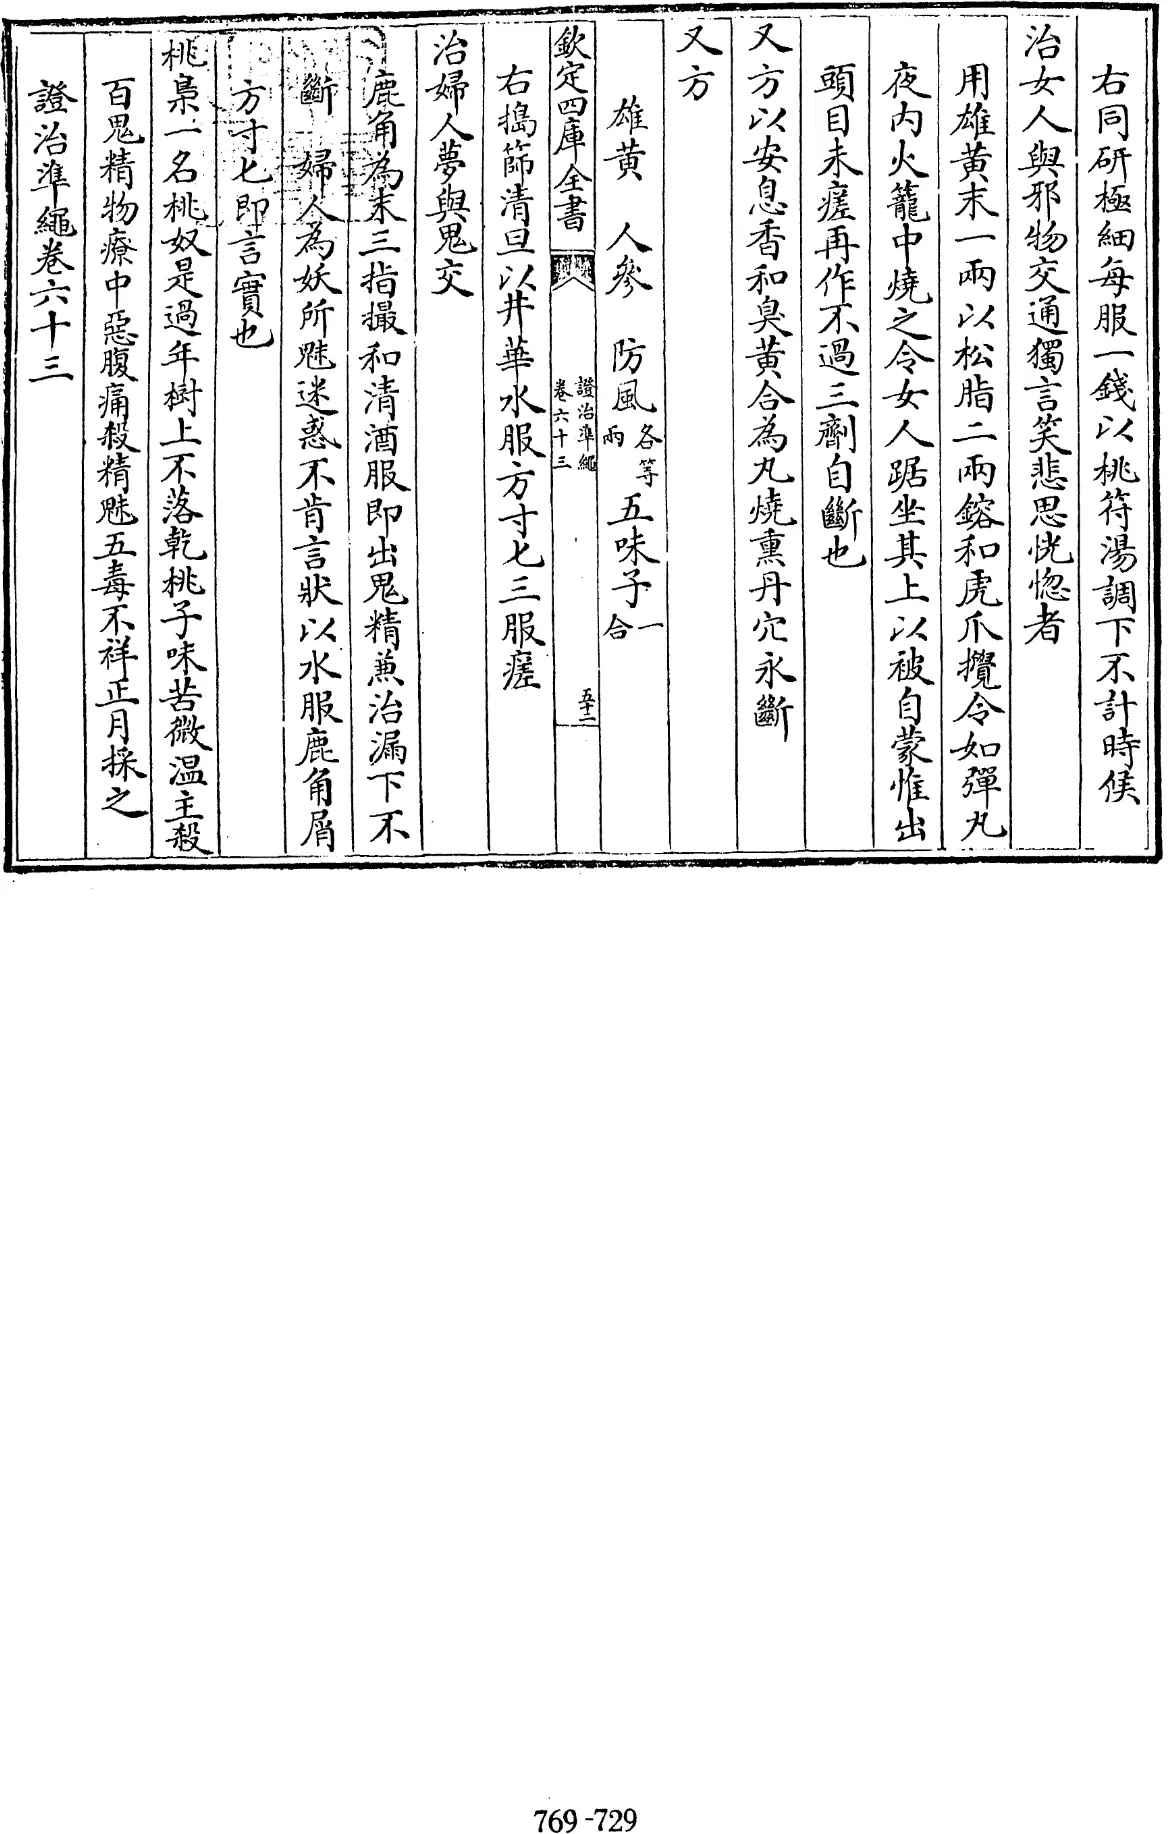 右同研極細每服一錢以桃符湯調下不計時候
治女人與邪物交通獨言笑悲思恍惚者
用雄黄末一兩以松脂二兩鎔和虎爪攪令如彈丸
夜内火籠中燒之令女人踞坐其上以被自蒙惟出
頭目未瘥再作不過三劑自斷也
又方以安息香和臭黄合為丸燒熏丹穴永斷
又方
雄黄 人參 防風各等兩 五味子一合
欽定四庫全書 證治準繩 卷六十三 五十二
右搗篩清旦以井華水服方寸匕三服瘥
治婦人夢與鬼交
鹿角為末三指撮和清酒服即出鬼精兼治漏下不
斷 婦人為妖所魅迷惑不肯言狀以水服鹿角屑
方寸匕即言實也
桃梟一名桃奴是過年樹上不落乾桃子味苦微温主殺
百鬼精物療中惡腹痛殺精魅五毒不祥正月採之
證治準繩卷六十三
769-729